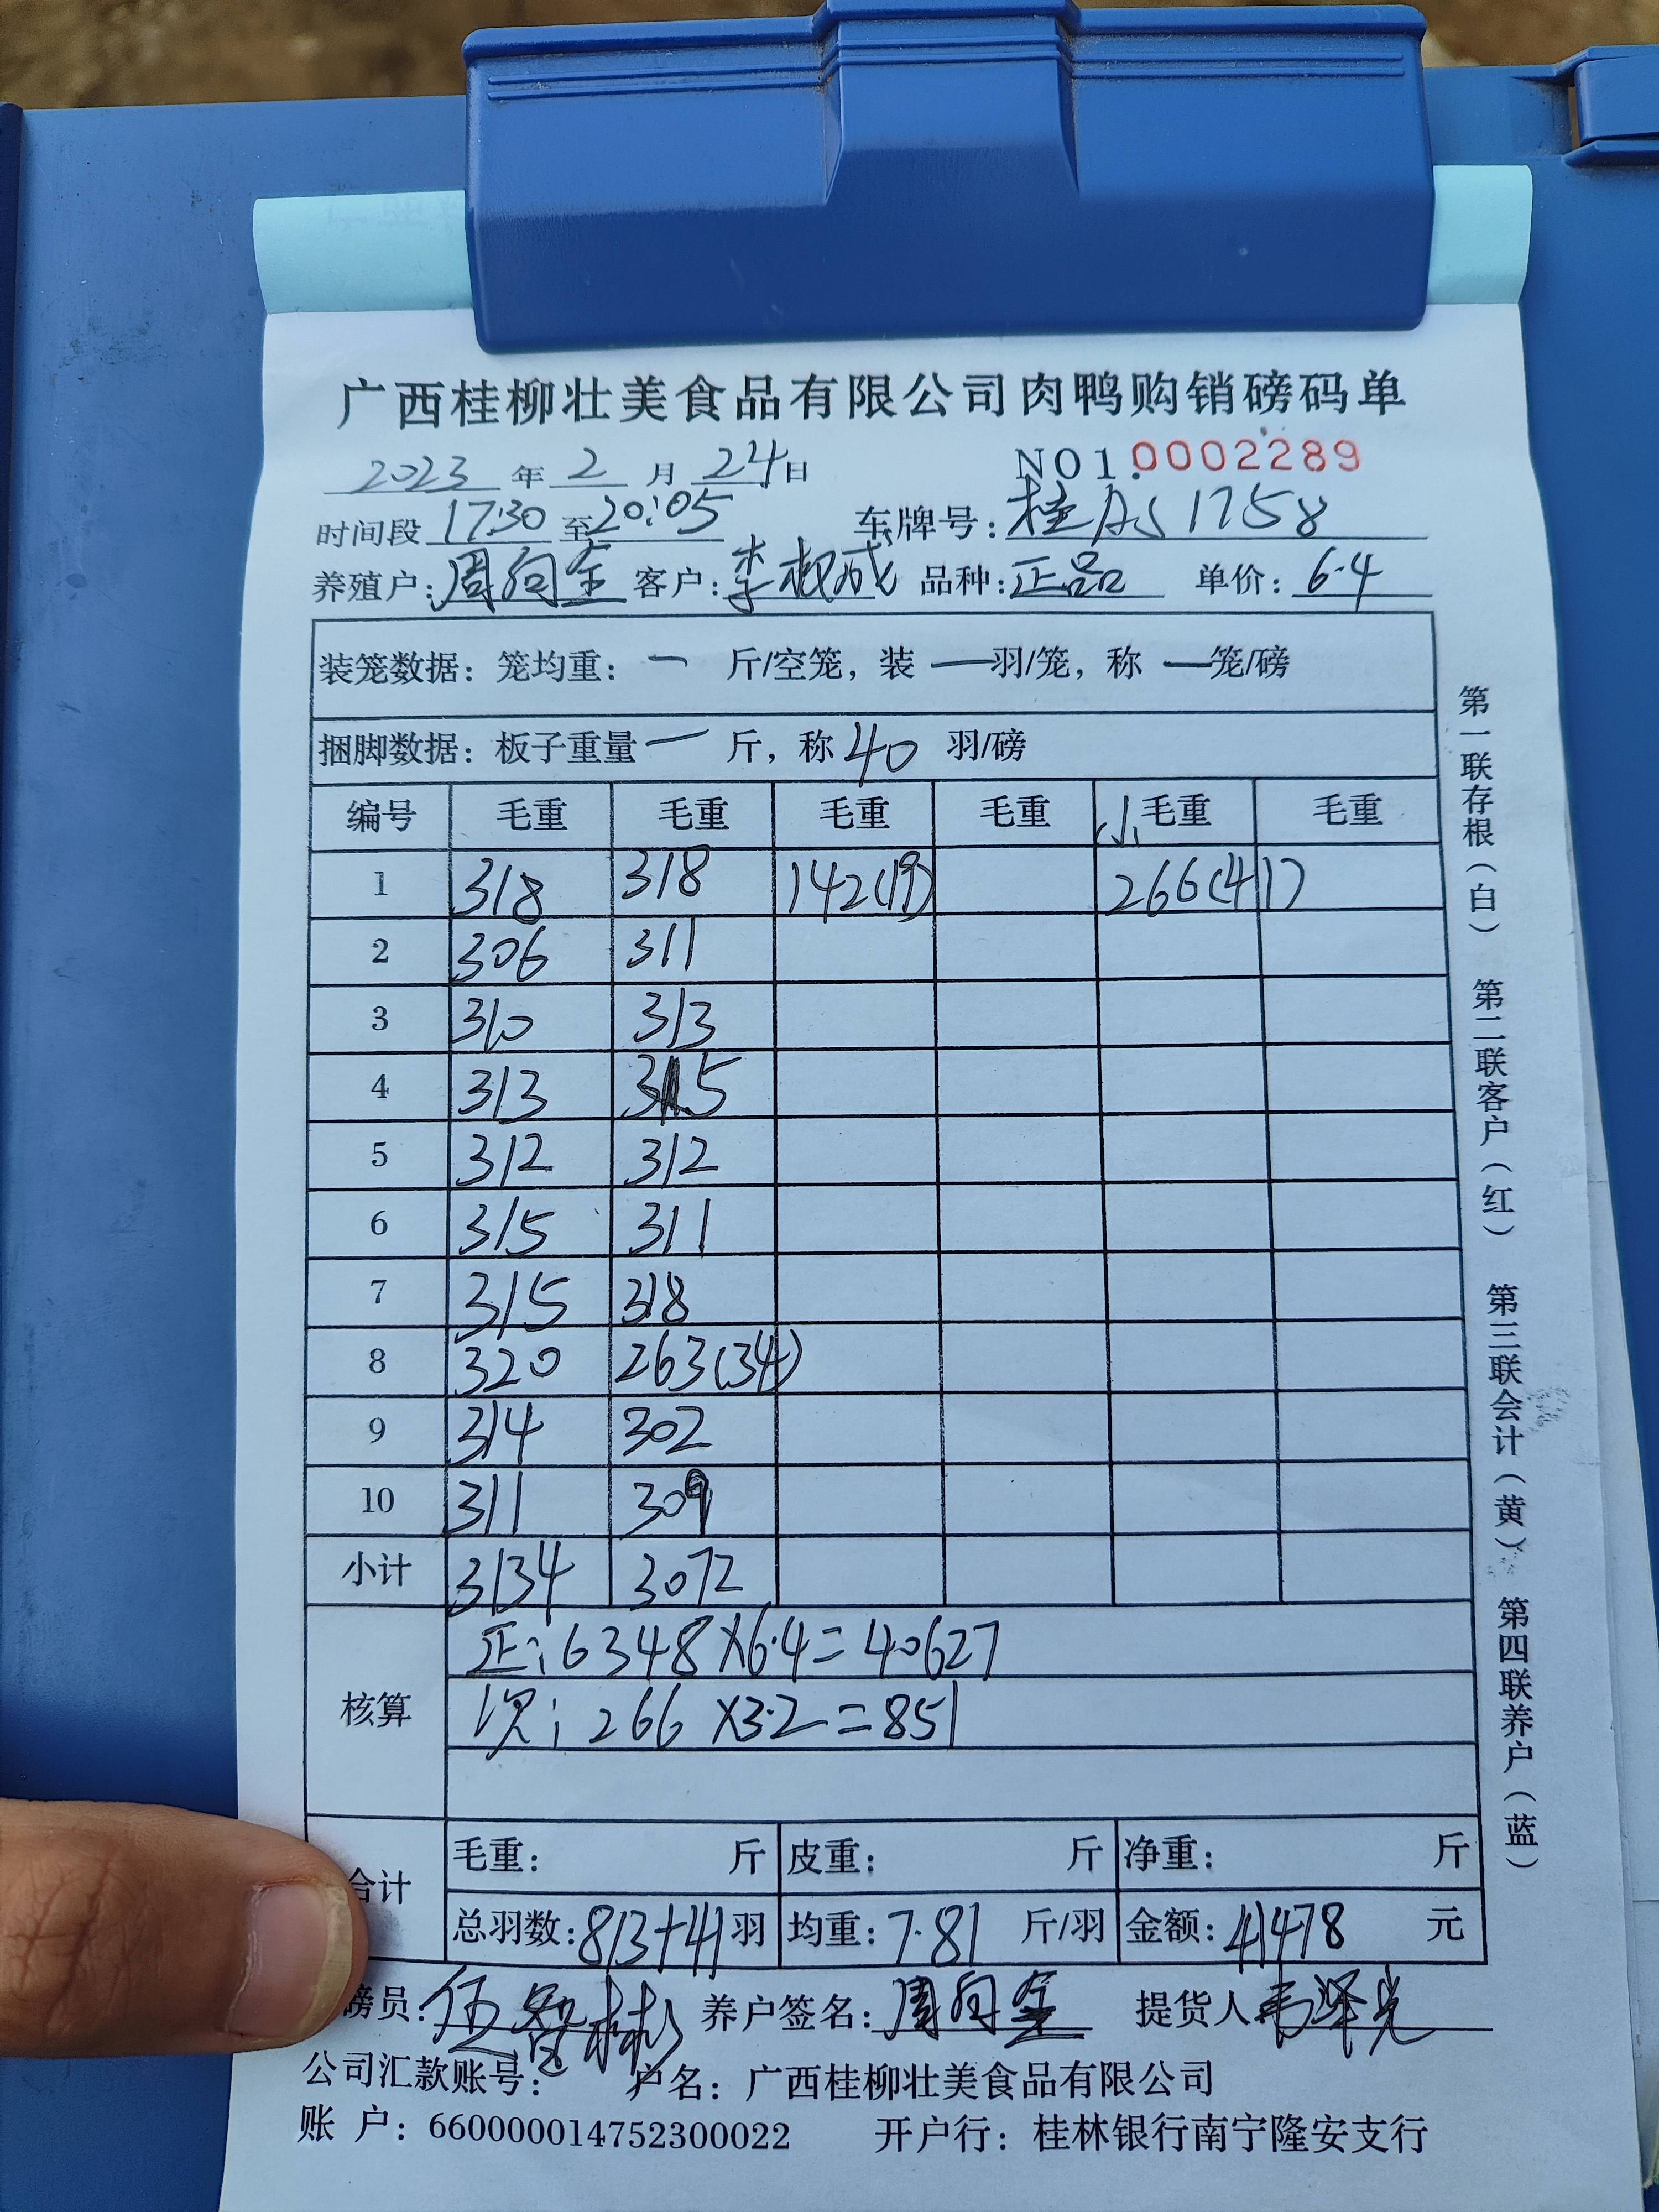 广西桂柳壮美食品有限公司肉鸭购销磅码单
2023年2月24日 NO1.0002289
时间段17:30至20:05 车牌号:桂 1758
养殖户:周向金 客户:李 成 品种:正品 单价:6.4
装笼数据:笼均重:一 斤/空笼,装 一羽/笼,称 一笼/磅
捆脚数据:板子重量一 斤,称40 羽/磅
编号 毛重 毛重 毛重 毛重 小毛重 毛重
1 318 318 142(19) 266(41)
2 306 311
3 310 313
4 313 315
5 312 312
6 315 311
7 315 318
8 320 263(34)
9 314 302
10 311 309
小计 3134 3072
核算 正:6348×6.4=40627
次:266×3.2=851
合计 毛重: 斤 皮重: 斤 净重: 斤
总羽数:813+41羽 均重:7.81 斤/羽 金额:41478 元
磅员:伍智彬 养户签名:周向金 提货人韦泽光
公司汇款账号: 户名:广西桂柳壮美食品有限公司
账 户:660000014752300022 开户行:桂林银行南宁隆安支行
第一联存根(白) 第二联客户(红) 第三联会计(黄) 第四联养户(蓝)